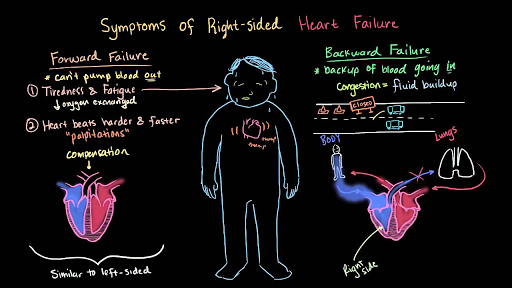 Symptoms of Right-sided Heart Failure
Forward Failure
* can't pump blood out
① Tiredness & Fatigue
↓ oxygen exchanged
② Heart beats harder & faster
"palpitations"
compensation
Similar to left-sided
thump
thump
Backward Failure
* backup of blood going in
Congestion = fluid buildup
CLOSED
BODY
Lungs
Right side